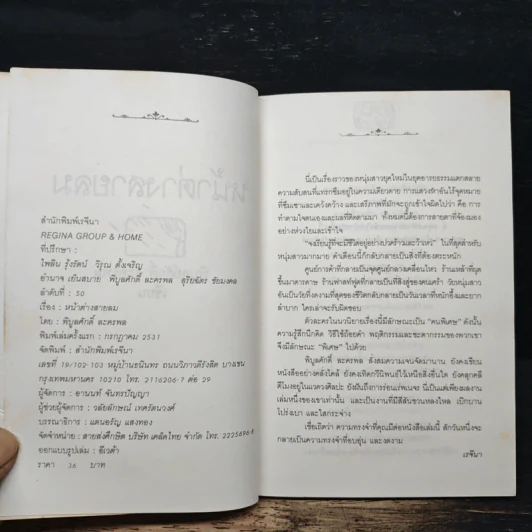 สำนักพิมพ์เรจีนา
REGINA GROUP & HOME
ที่ปรึกษา :
ไพลิน รุ้งรัตน์ วิรุณ ตั้งเจริญ
อำนาจ เย็นสบาย พิบูลศักดิ์ ละครพล สุริยฉัตร ชัยมงคล
ลำดับที่ : 50
เรื่อง : หน้าต่างสายลม
โดย : พิบูลศักดิ์ ละครพล
พิมพ์เล่มครั้งแรก : กรกฎาคม 2531
จัดพิมพ์ : สำนักพิมพ์เรจีนา
เลขที่ 19/102-103 หมู่บ้านธนินทร ถนนวิภาวดีรังสิต บางเขน
กรุงเทพมหานคร 10210 โทร. 2116206-7 ต่อ 29
ผู้จัดการ : อานนท์ จันทรปัญญา
ผู้ช่วยผู้จัดการ : วลัยลักษณ์ เทศรัตนวงศ์
บรรณาธิการ : แดนอรัญ แสงทอง
จัดจำหน่าย : สายส่งศึกษิต บริษัท เคล็ดไทย จำกัด โทร. 2225696-8
ออกแบบรูปเล่ม : อีเวต้า
ราคา 36 บาท
นี่เป็นเรื่องราวของหนุ่มสาวยุคใหม่ในยุคอารยธรรมแตกสลาย
ความสับสนที่แทรกซึมอยู่ในความเดียวดาย การแสวงหาอันไร้จุดหมาย
ที่ซึมเซาและเคว้งคว้าง และเสรีภาพที่มักจะถูกเข้าใจผิดไปว่า คือ การ
ทำตามใจตนเองและผลที่ติดตามมา ทั้งหมดนี้ต้องการสายตาที่จ้องมอง
อย่างห่วงใยและเข้าใจ
"จงเรียนรู้ที่จะมีชีวิตอยู่อย่างปวดร้าวและว้าเหว่" ในที่สุดสำหรับ
หนุ่มสาวมากมาย คำเตือนนี้ก็กลายเป็นสิ่งที่ต้องตระหนัก
ศูนย์การค้าที่กลายเป็นจุดศูนย์กลางเคลื่อนไหว ร้านเหล้าที่ผุด
ขึ้นมาดารดาษ ร้านฟาสท์ฟูดที่กลายเป็นสิ่งสู่ของคนเก่า วัยหนุ่มสาว
อันเป็นวัยที่งดงามที่สุดของชีวิตกลับกลายเป็นวันเวลาที่หนักอึ้งและยาก
ลำบาก ใครเล่าจะรับผิดชอบ
ตัวละครในนวนิยายเรื่องนี้มีลักษณะเป็น "คนพิเศษ" ดังนั้น
ความรู้สึกนึกคิด วิธีใช้ถ้อยคำ พฤติกรรมและชะตากรรมของพวกเขา
จึงมีลักษณะ "พิเศษ" ไปด้วย
พิบูลศักดิ์ ละครพล สั่งสมความเจนจัดมานาน ยังคงเขียน
หนังสืออย่างคลั่งไคล้ ยังคงเทิดกวีนิพนธ์ไว้เหนือสิ่งอื่นใด
เชื่อเถิดว่า ความทรงจำที่คุณมีต่อหนังสือเล่มนี้ สักวันหนึ่งจะ
กลายเป็นความทรงจำที่อบอุ่น และงดงาม
เรจีนา